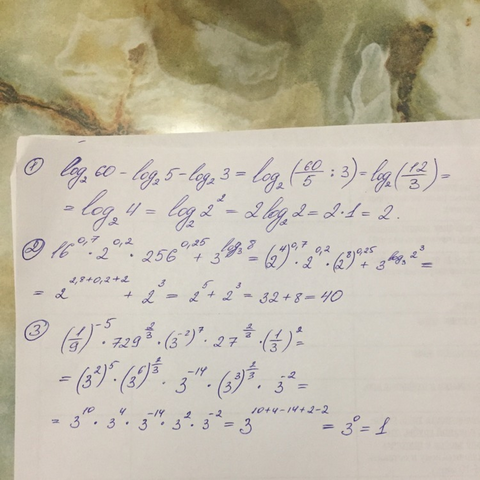 1) log₂60 - log₂5 - log₂3 = log₂(60/5 : 3) = log₂(12/3) =
= log₂4 = log₂2² = 2log₂2 = 2·1 = 2.
2) 16^0,7 · 2^0,2 · 256^0,25 + 3^log₃8 = (2⁴)^0,7 · 2^0,2 · (2⁸)^0,25 + 3^log₃2³ =
= 2^2,8+0,2+2 + 2³ = 2⁵ + 2³ = 32 + 8 = 40
3) (1/9)^-5 · 729^2/3 · (3^-2)^7 · 27^2/3 · (1/3)^2 =
= (3²)^5 · (3⁶)^2/3 · 3^-14 · (3³)^2/3 · 3^-2 =
= 3^10 · 3^4 · 3^-14 · 3^2 · 3^-2 = 3^10+4-14+2-2 = 3^0 = 1